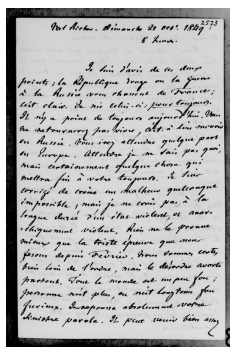 2573
Dimanche 21 oct. 1849
8 heures.
Je suis d'avis de ces deux
points; la République rouge ou la guerre
à la Russie vous chassent de France;
c'est clair. Je nie celui-ci: pour toujours.
Il n'y a point de toujours aujourd'hui. Vous
ne retournerez pas vivre, c.-à-d. bien mourir
en Russie. Vous irez attendre quelque part
en Europe. Attendre je ne sais pas quoi,
mais certainement quelque chose qui
mettra fin à votre toujours. Je suis
corrigé de croire un malheur quelconque
impossible; mais je ne crois pas à la
longue durée d'un état violent, et anar-
chiquement violent. Rien ne le prouve
mieux que la triste épreuve que nous
faisons depuis Février. Nous sommes certes
bien loin de l'ordre, mais le désordre avorte
partout. Tout le monde est un peu fou;
personne n'est plus, ou n'est longtemps fou
furieux. Je repousse absolument votre
sinistre parole. Il peut venir bien assez